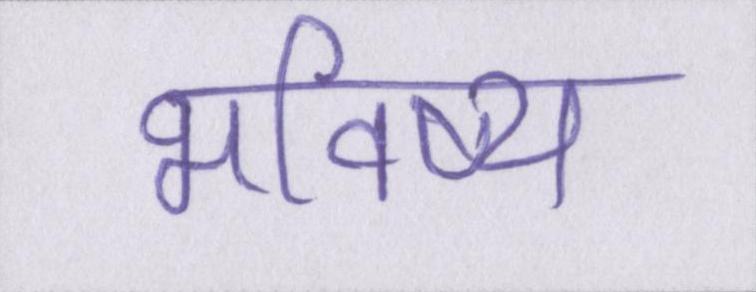 भविष्य